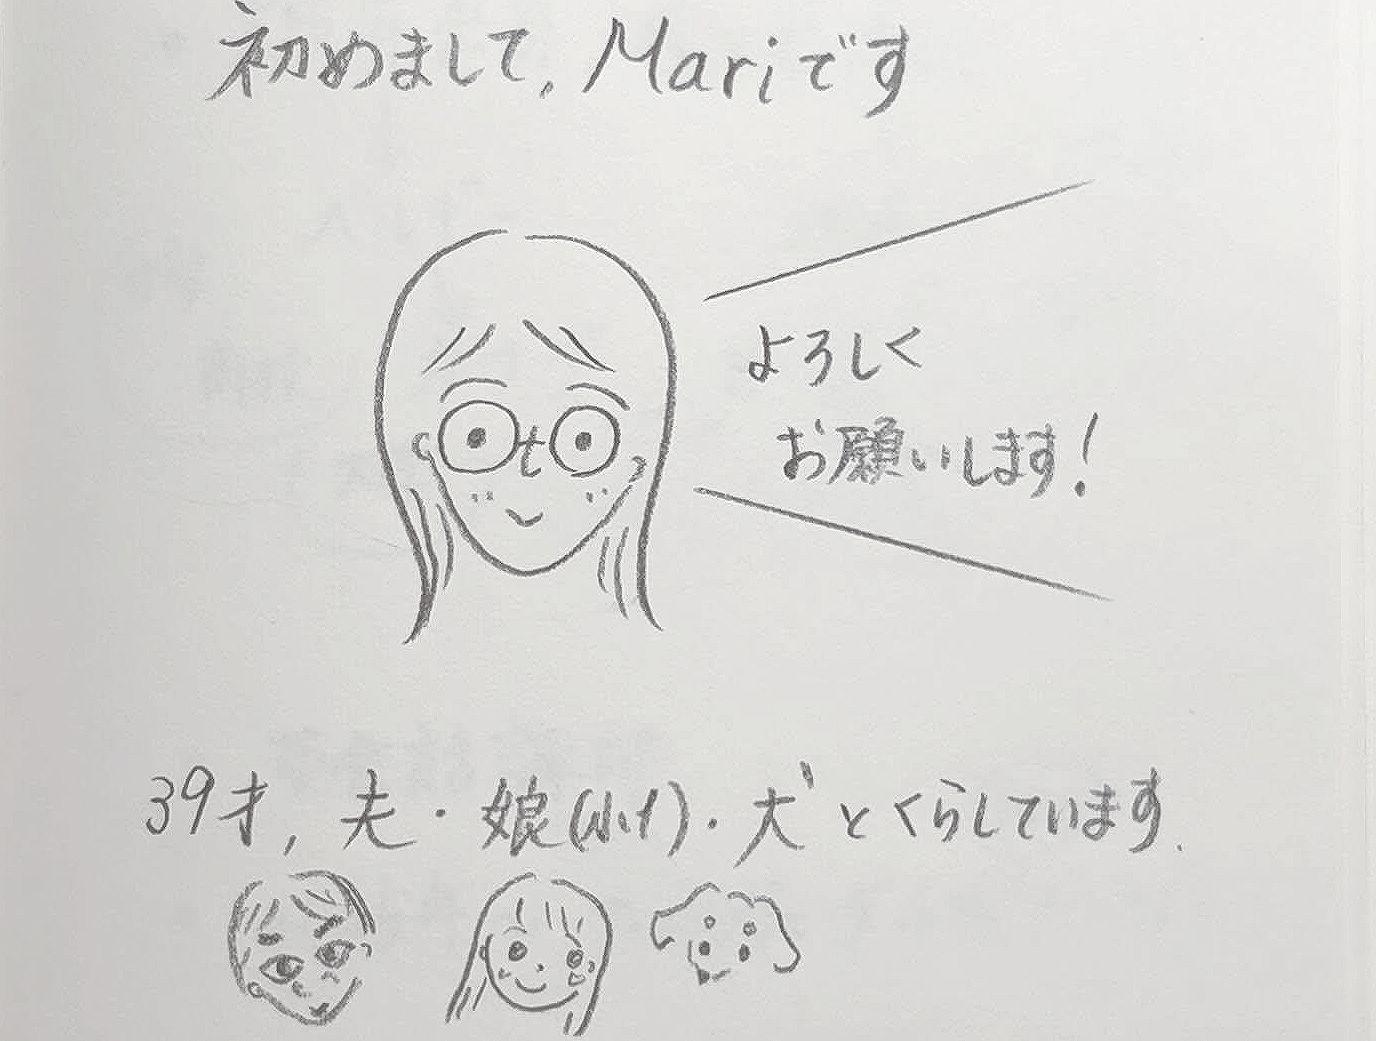 初めまして, Mariです
よろしく
お願いします!
39才, 夫・娘(小1)・犬とくらしています.